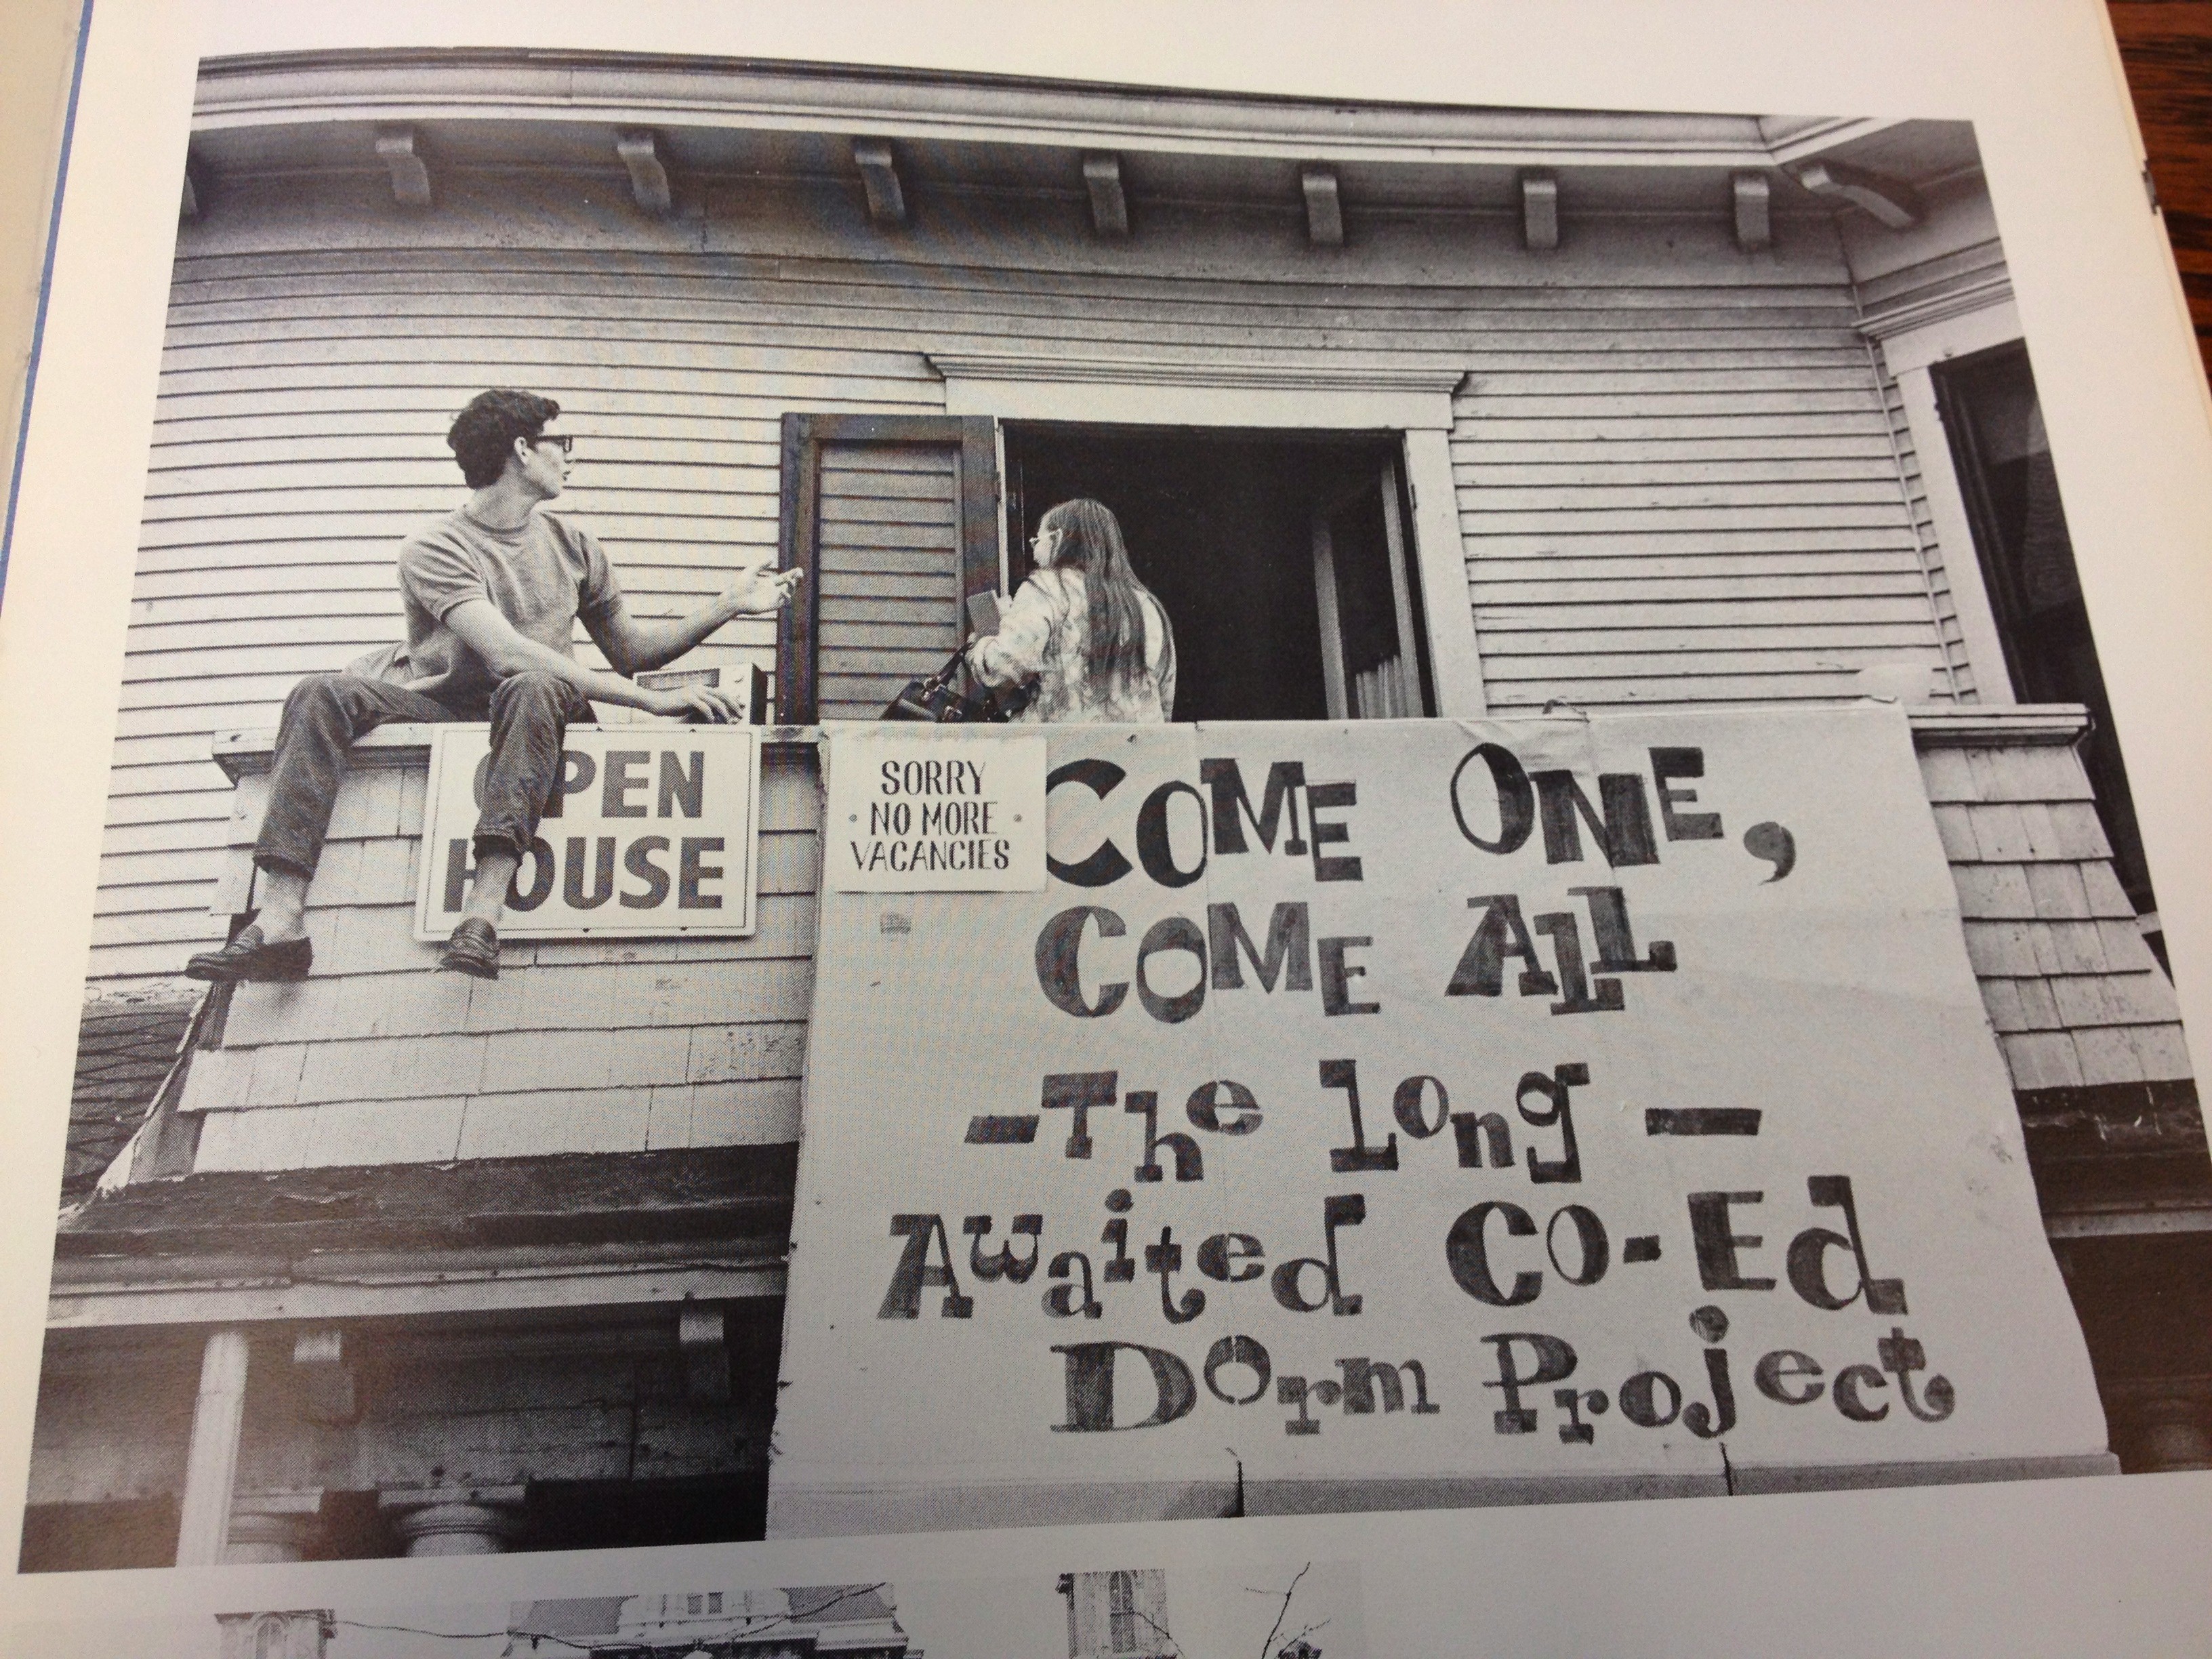 OPEN
HOUSE
SORRY
• NO MORE •
VACANCIES
COME ONE,
COME ALL
-The long-
Awaited Co-Ed
Dorm Project